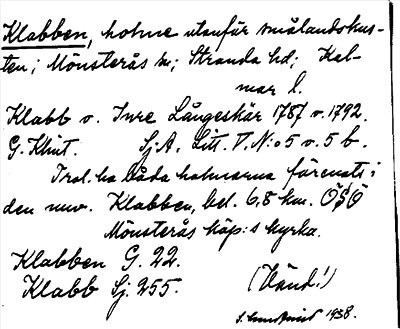 Klabben, holme utanför smålandskus-
ten; Mönsterås sn; Stranda hd; Kal-
mar l.
Klabb v. Inre Långeskär 1787 v. 1792.
G. Klint. Sj.A. Litt. V. N:o 5 v. 5 b.
Trol. ha båda holmarna förenats i
den nuv. Klabben, bel. 6,8 km. ÖSÖ
Mönsterås köp:s kyrka.
Klabben G. 22.
Klabb Sj. 255. (Vänd!)
1938.